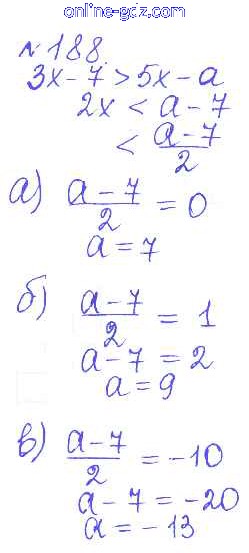 online-gdz.com
№188.
3x-7>5x-a
2x<a-7
<(a-7)/2
а) (a-7)/2=0
a=7
б) (a-7)/2=1
a-7=2
a=9
в) (a-7)/2=-10
a-7=-20
a=-13